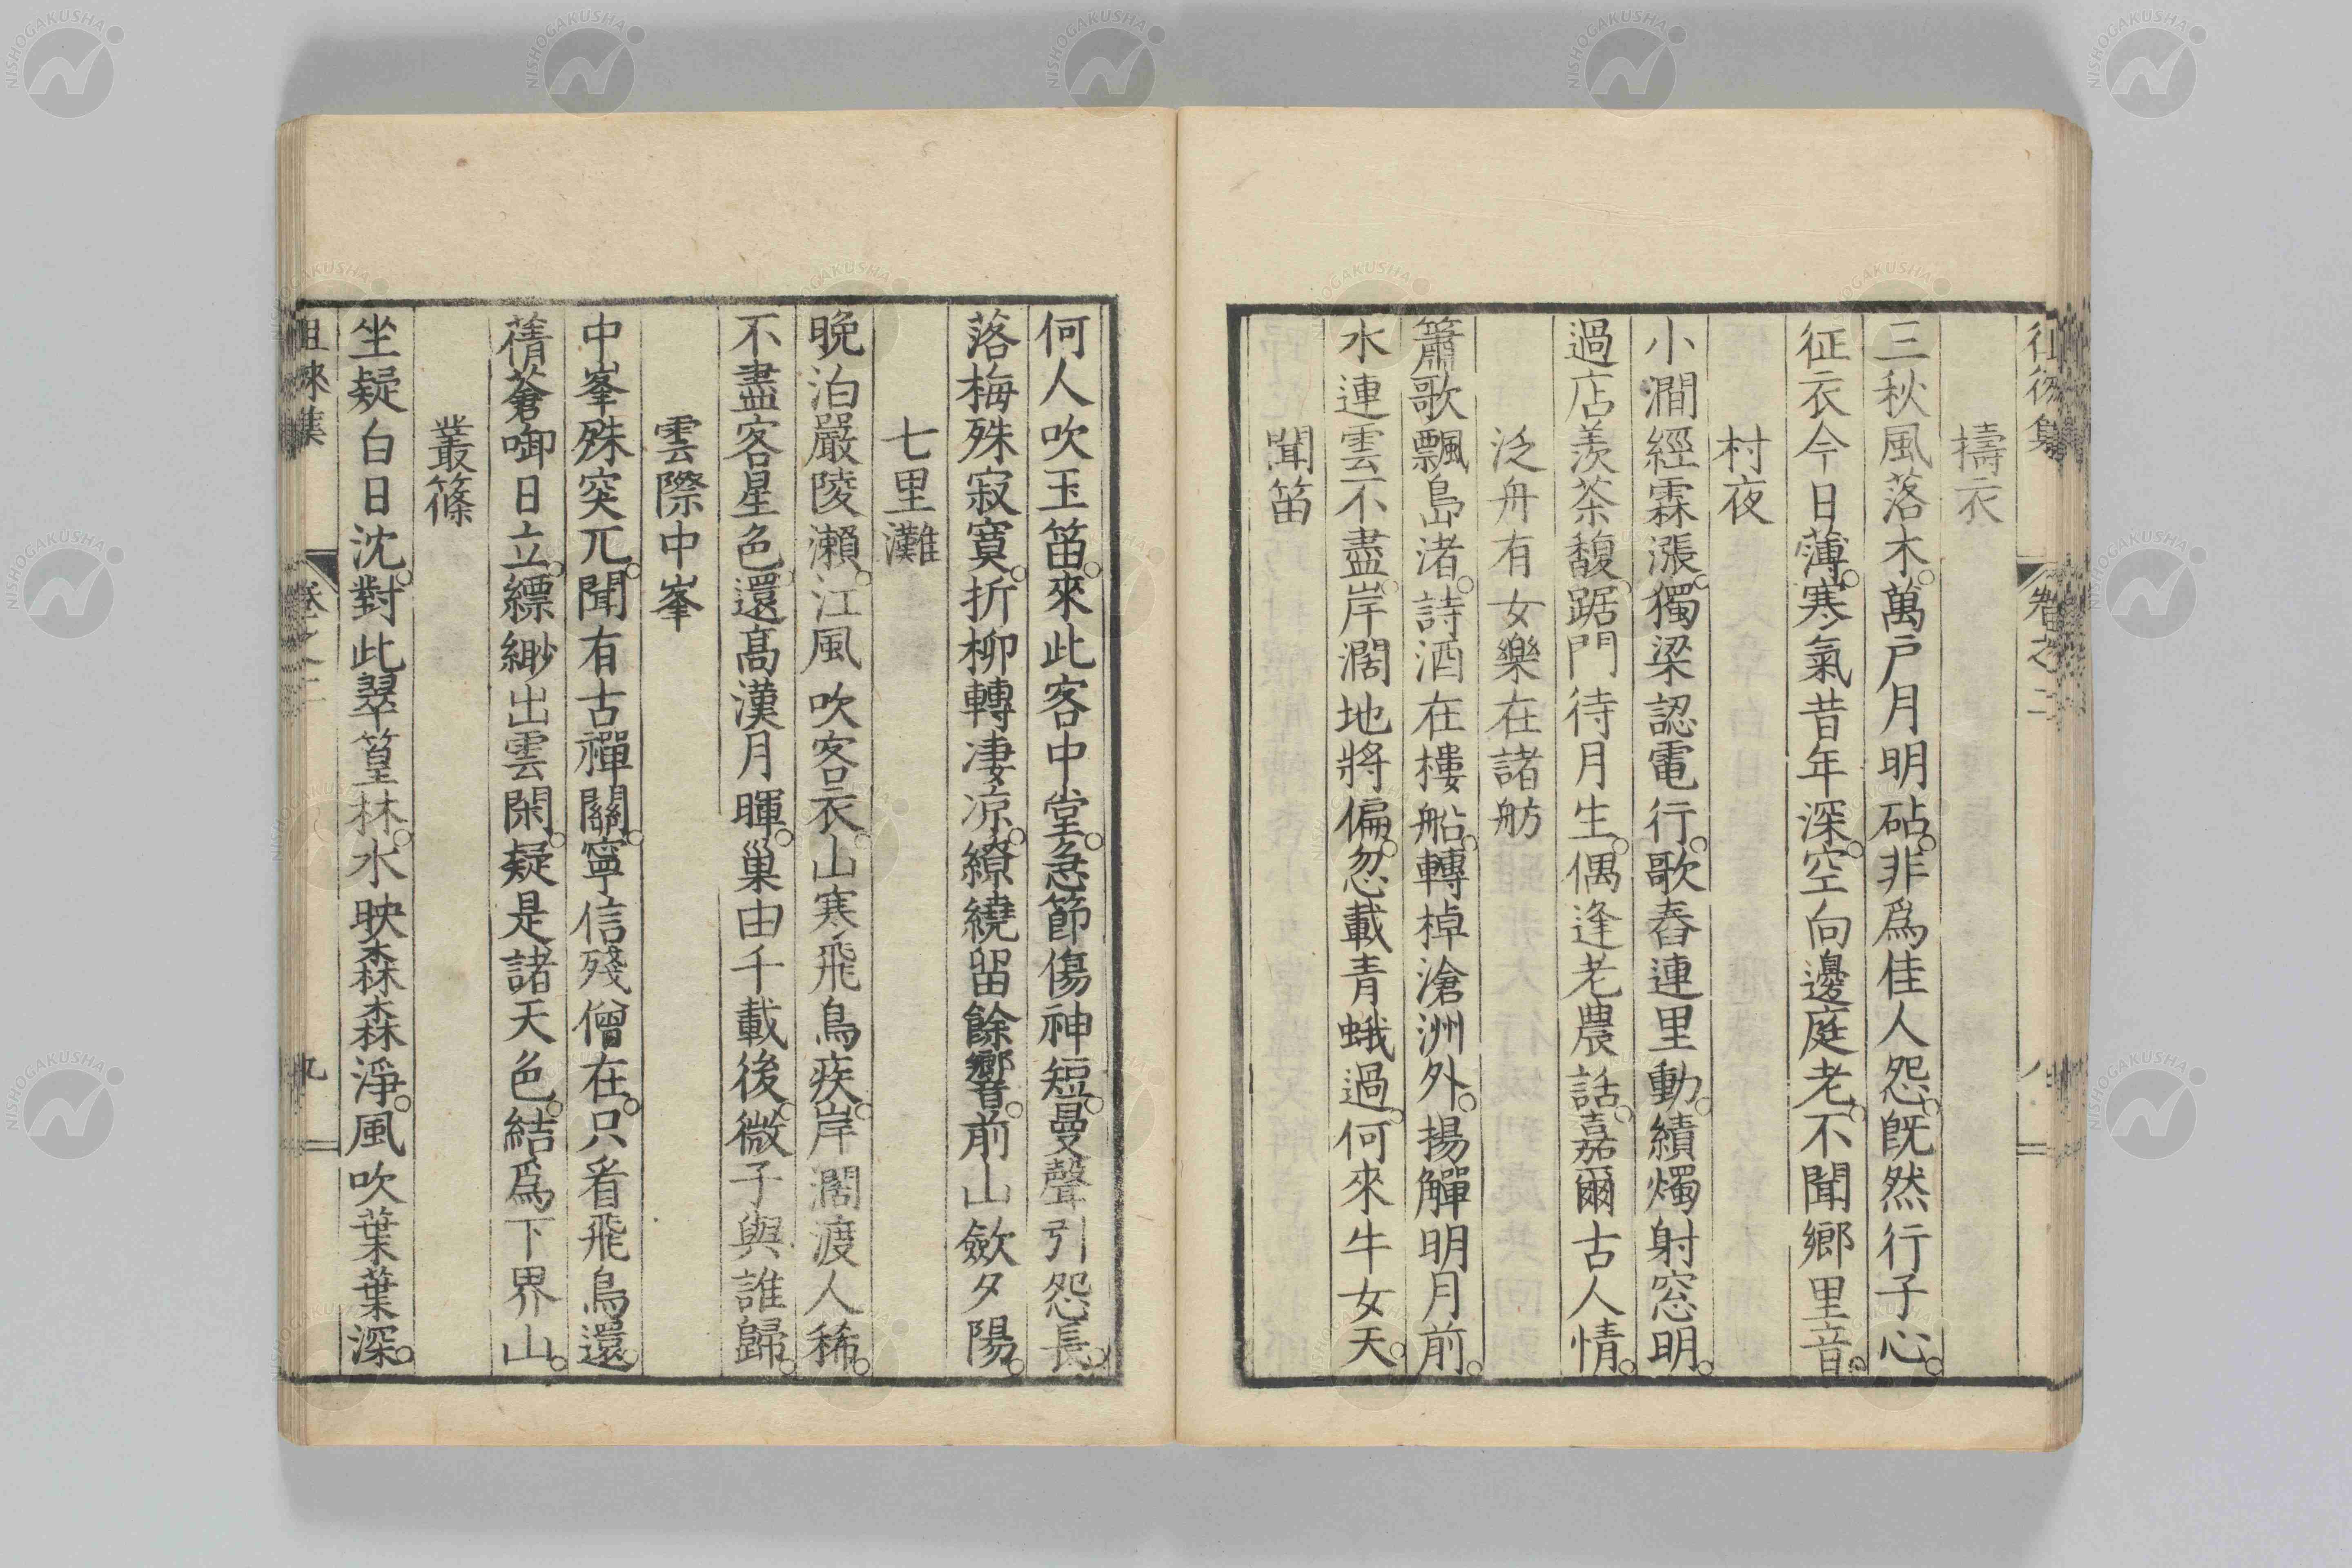 擣衣
三秋風落木。萬戸月明砧。非爲佳人怨。既然行子心。
征衣今日薄。寒氣昔年深。空向邊庭老。不聞郷里音。
村夜
小澗經霖漲。獨梁認電行。歌舂連里動。績燭射窓明。
過店羨茶馥。踞門待月生。偶逢老農話。嘉爾古人情。
泛舟有女樂在諸舫
簫歌飄島渚。詩酒在樓船。轉棹滄洲外。揚觶明月前。
水連雲不盡。岸濶地將偏。忽載青蛾過。何來牛女天。
聞笛
卷之二
何人吹玉笛。來此客中堂。急節傷神短。曼聲引怨長。
落梅殊寂寞。折柳轉凄凉。繚繞留餘響。前山斂夕陽。
七里灘
晩泊嚴陵瀨。江風吹客衣。山寒飛鳥疾。岸濶渡人稀。
不盡客星色。還高漢月暉。巢由千載後。微子與誰歸。
雲際中峯
中峯殊突兀。聞有古禪關。寧信殘僧在。只看飛鳥還。
蒨蒼啣日立。縹緲出雲閑。疑是諸天色。結爲下界山。
叢篠
坐疑白日沈。對此翠篁林。水映森森淨。風吹葉葉深。
徂徠集 卷之二 九
NISHOGAKUSHA